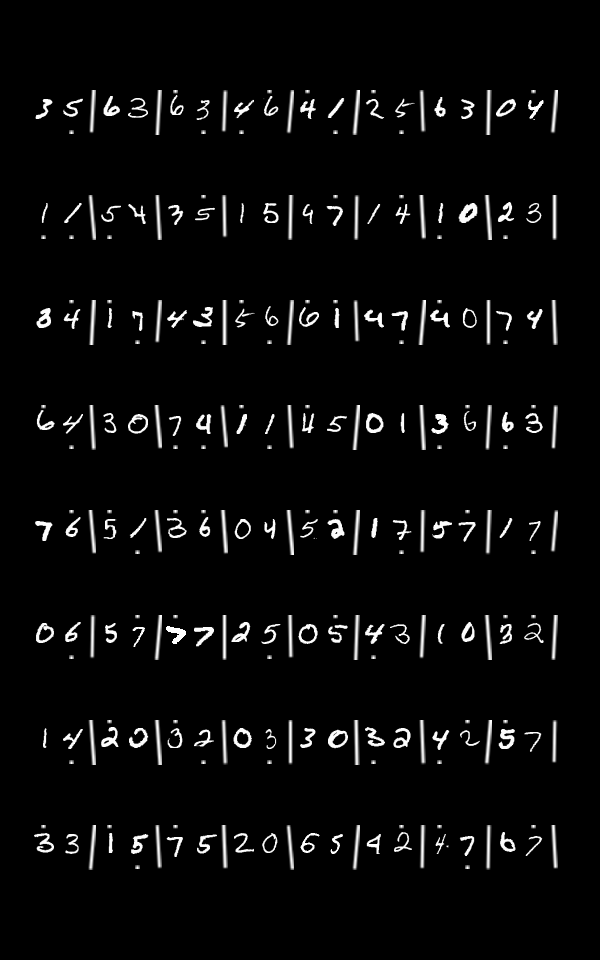 3 5 | 6 3 | 6 3 | 4 6 | 4 1 | 2 5 | 6 3 | 0 4 |
1 1 | 5 4 | 3 5 | 1 5 | 4 7 | 1 4 | 1 0 | 2 3 |
3 4 | 1 7 | 4 3 | 5 6 | 6 1 | 4 7 | 4 0 | 7 4 |
6 4 | 3 0 | 7 4 | 1 1 | 4 5 | 0 1 | 3 6 | 6 3 |
7 6 | 5 1 | 3 6 | 0 4 | 5 2 | 1 7 | 5 7 | 1 7 |
0 6 | 5 7 | 7 7 | 2 5 | 0 5 | 4 3 | 1 0 | 3 2 |
1 4 | 2 0 | 3 2 | 0 3 | 3 0 | 3 2 | 4 2 | 5 7 |
3 3 | 1 5 | 7 5 | 2 0 | 6 5 | 4 2 | 4 7 | 6 7 |